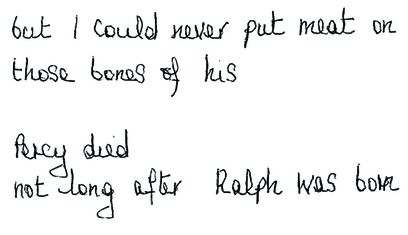 but I could never put meat on
those bones of his
Percy died
not long after Ralph was born